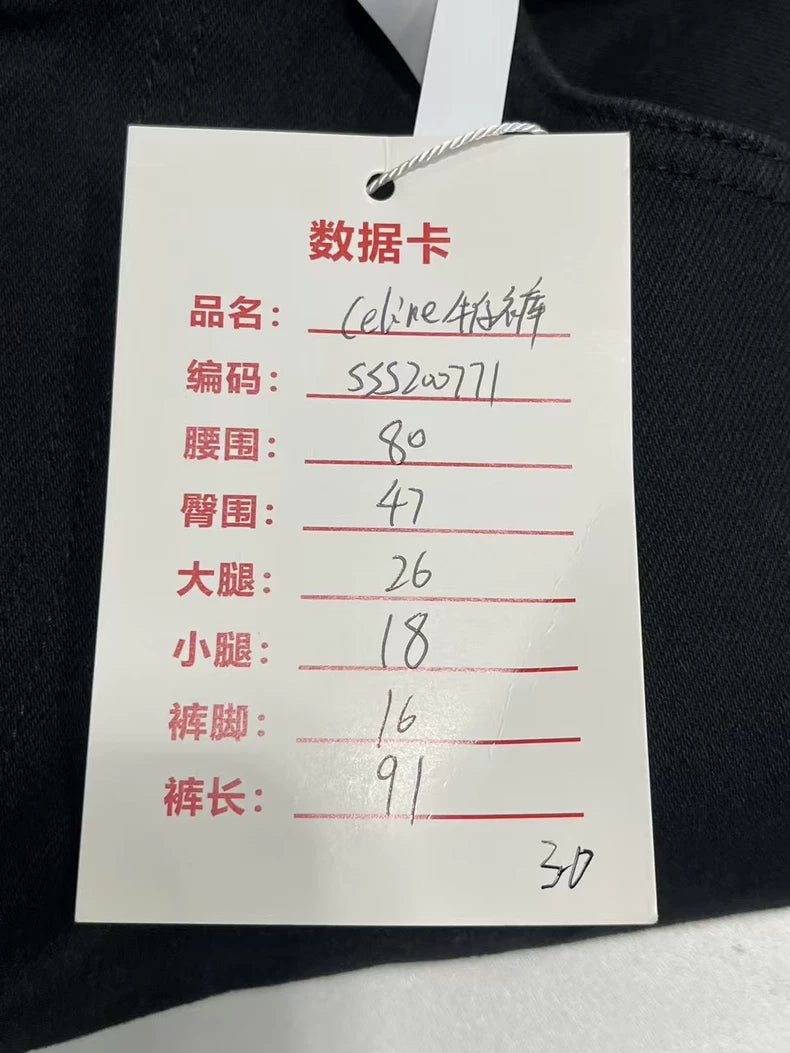 数据卡
品名: Celine牛仔裤
编码: SSS200771
腰围: 80
臀围: 47
大腿: 26
小腿: 18
裤脚: 16
裤长: 91
30